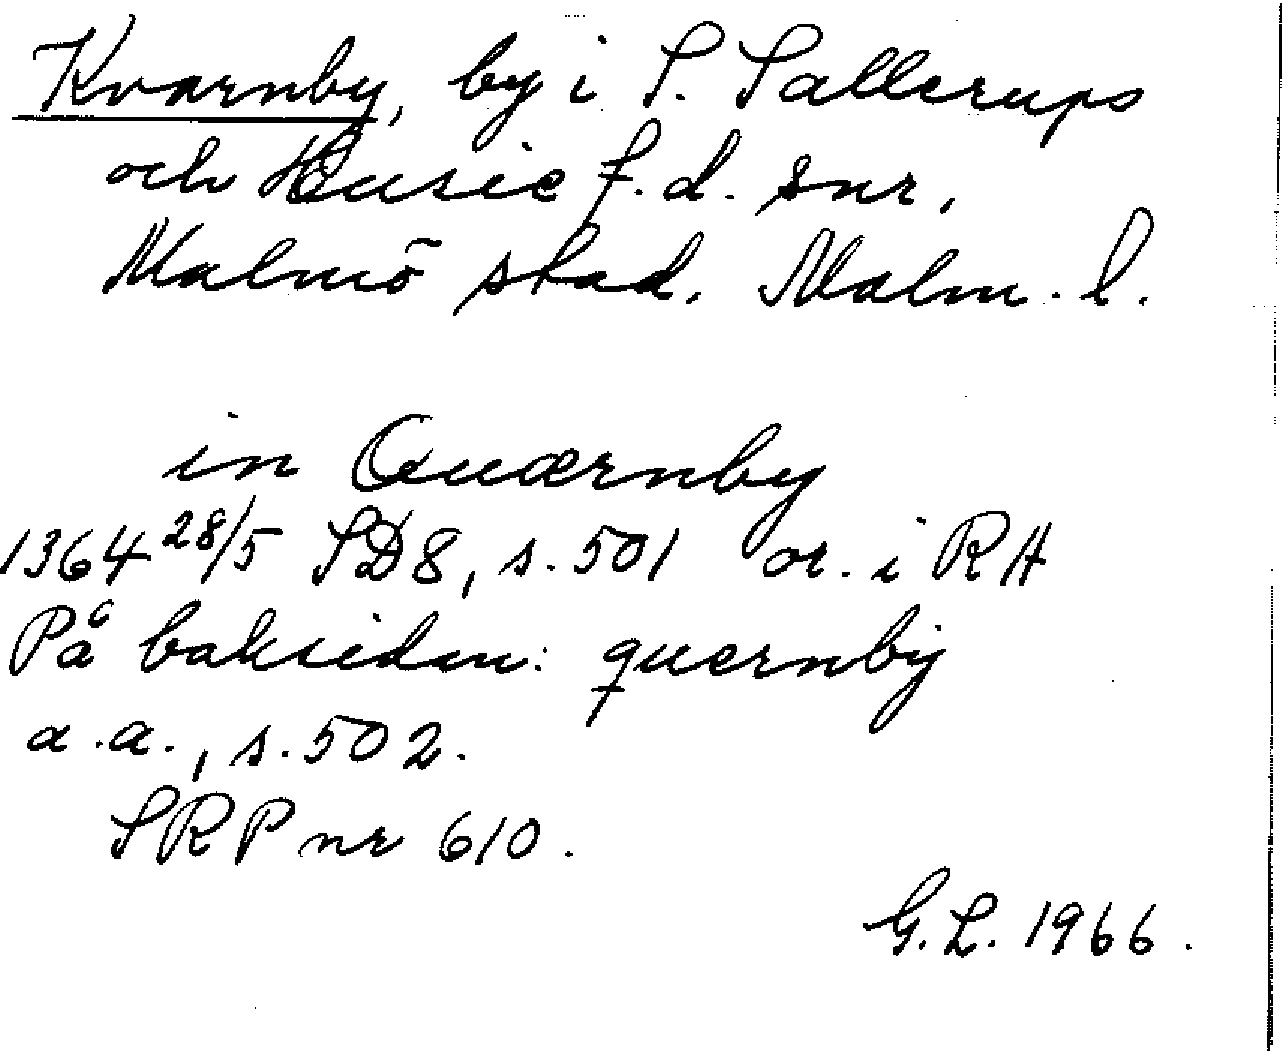 Kvarnby, by i S. Sallerups
och Husie f.d. snr,
Malmö stad, Malm. l.
in Quærnby
1364 28/5 SD8, s. 501 or. i RA
På baksidan: quernby
a.a., s. 502.
SRP nr 610.
G.L. 1966.